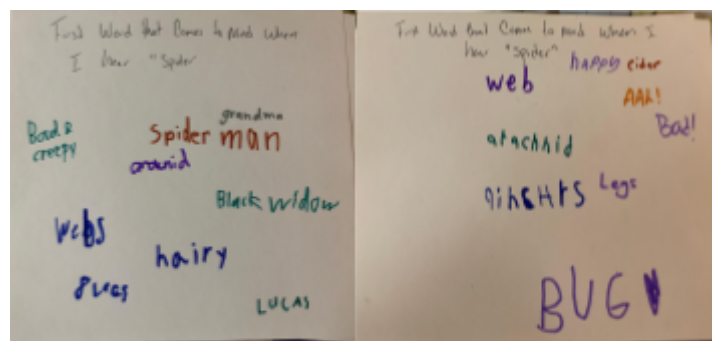 First Word that Comes to mind when
I hear "Spider
grandma
Bad &
creepy
spider man
Black widow
webs
hairy
LUCAS
First Word that Comes to mind when I
hear "Spider"
web
happy cider
AAh!
Bad!
arachnid
Legs
BUG